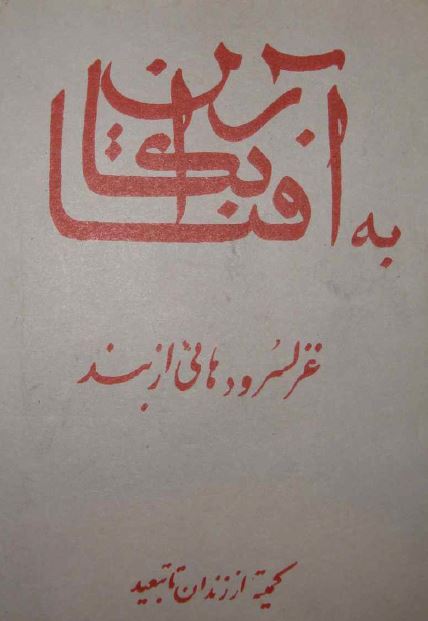 به آفتابکاران
غزلسرودهائی از بند
کمیتهٔ از زندان تا تبعید